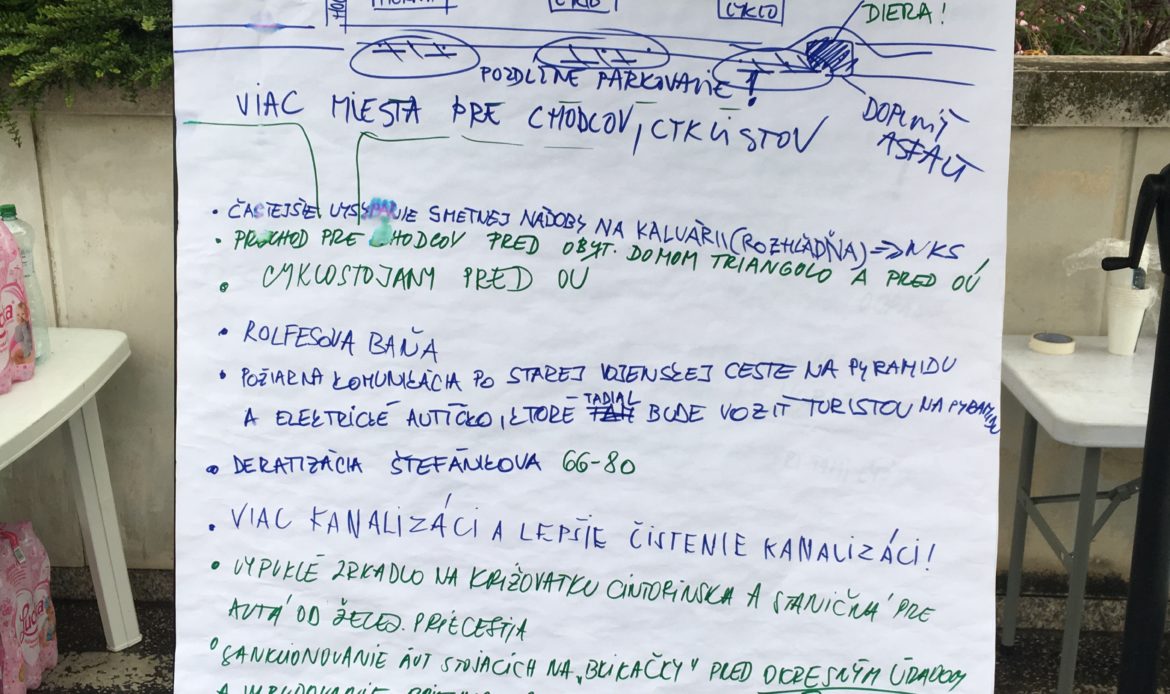 CYKLO
DIERA!
POZDLŽNE PARKOVANIE!
VIAC MIESTA PRE CHODCOV, CYKLISTOV
DOPLNIŤ
ASFALT
• ČASTEJŠIE VYSÝPANIE SMETNEJ NÁDOBY NA KALVÁRII (ROZHĽADŇA) => NKS
• PRECHOD PRE CHODCOV PRED OBYT. DOMOM TRIANGOLO A PRED OÚ
• CYKLOSTOJANY PRED OU
• ROLFESOVA BAŇA
• POŽIARNA KOMUNIKÁCIA PO STAREJ VOJENSKEJ CESTE NA PYRAMIDU
TADIAĽ
A ELEKTRICKÉ AUTÍČKO, KTORÉ TAM BUDE VOZIŤ TURISTOV NA PYRAMÍDU
• DERATIZÁCIA ŠTEFÁNIKOVA 66-80
• VIAC KANALIZÁCI A LEPŠIE ČISTENIE KANALIZÁCI!
• VYPUKLÉ ZRKADLO NA KRIŽOVATKU CINTORÍNSKA A STANIČNÁ PRE
AUTÁ OD ŽELEZ. PRIECESTIA
• SANKCIONOVANIE ÁUT STOJACICH NA "BLIKAČKY" PRED OKRESNÝM ÚRADOM
Lucia